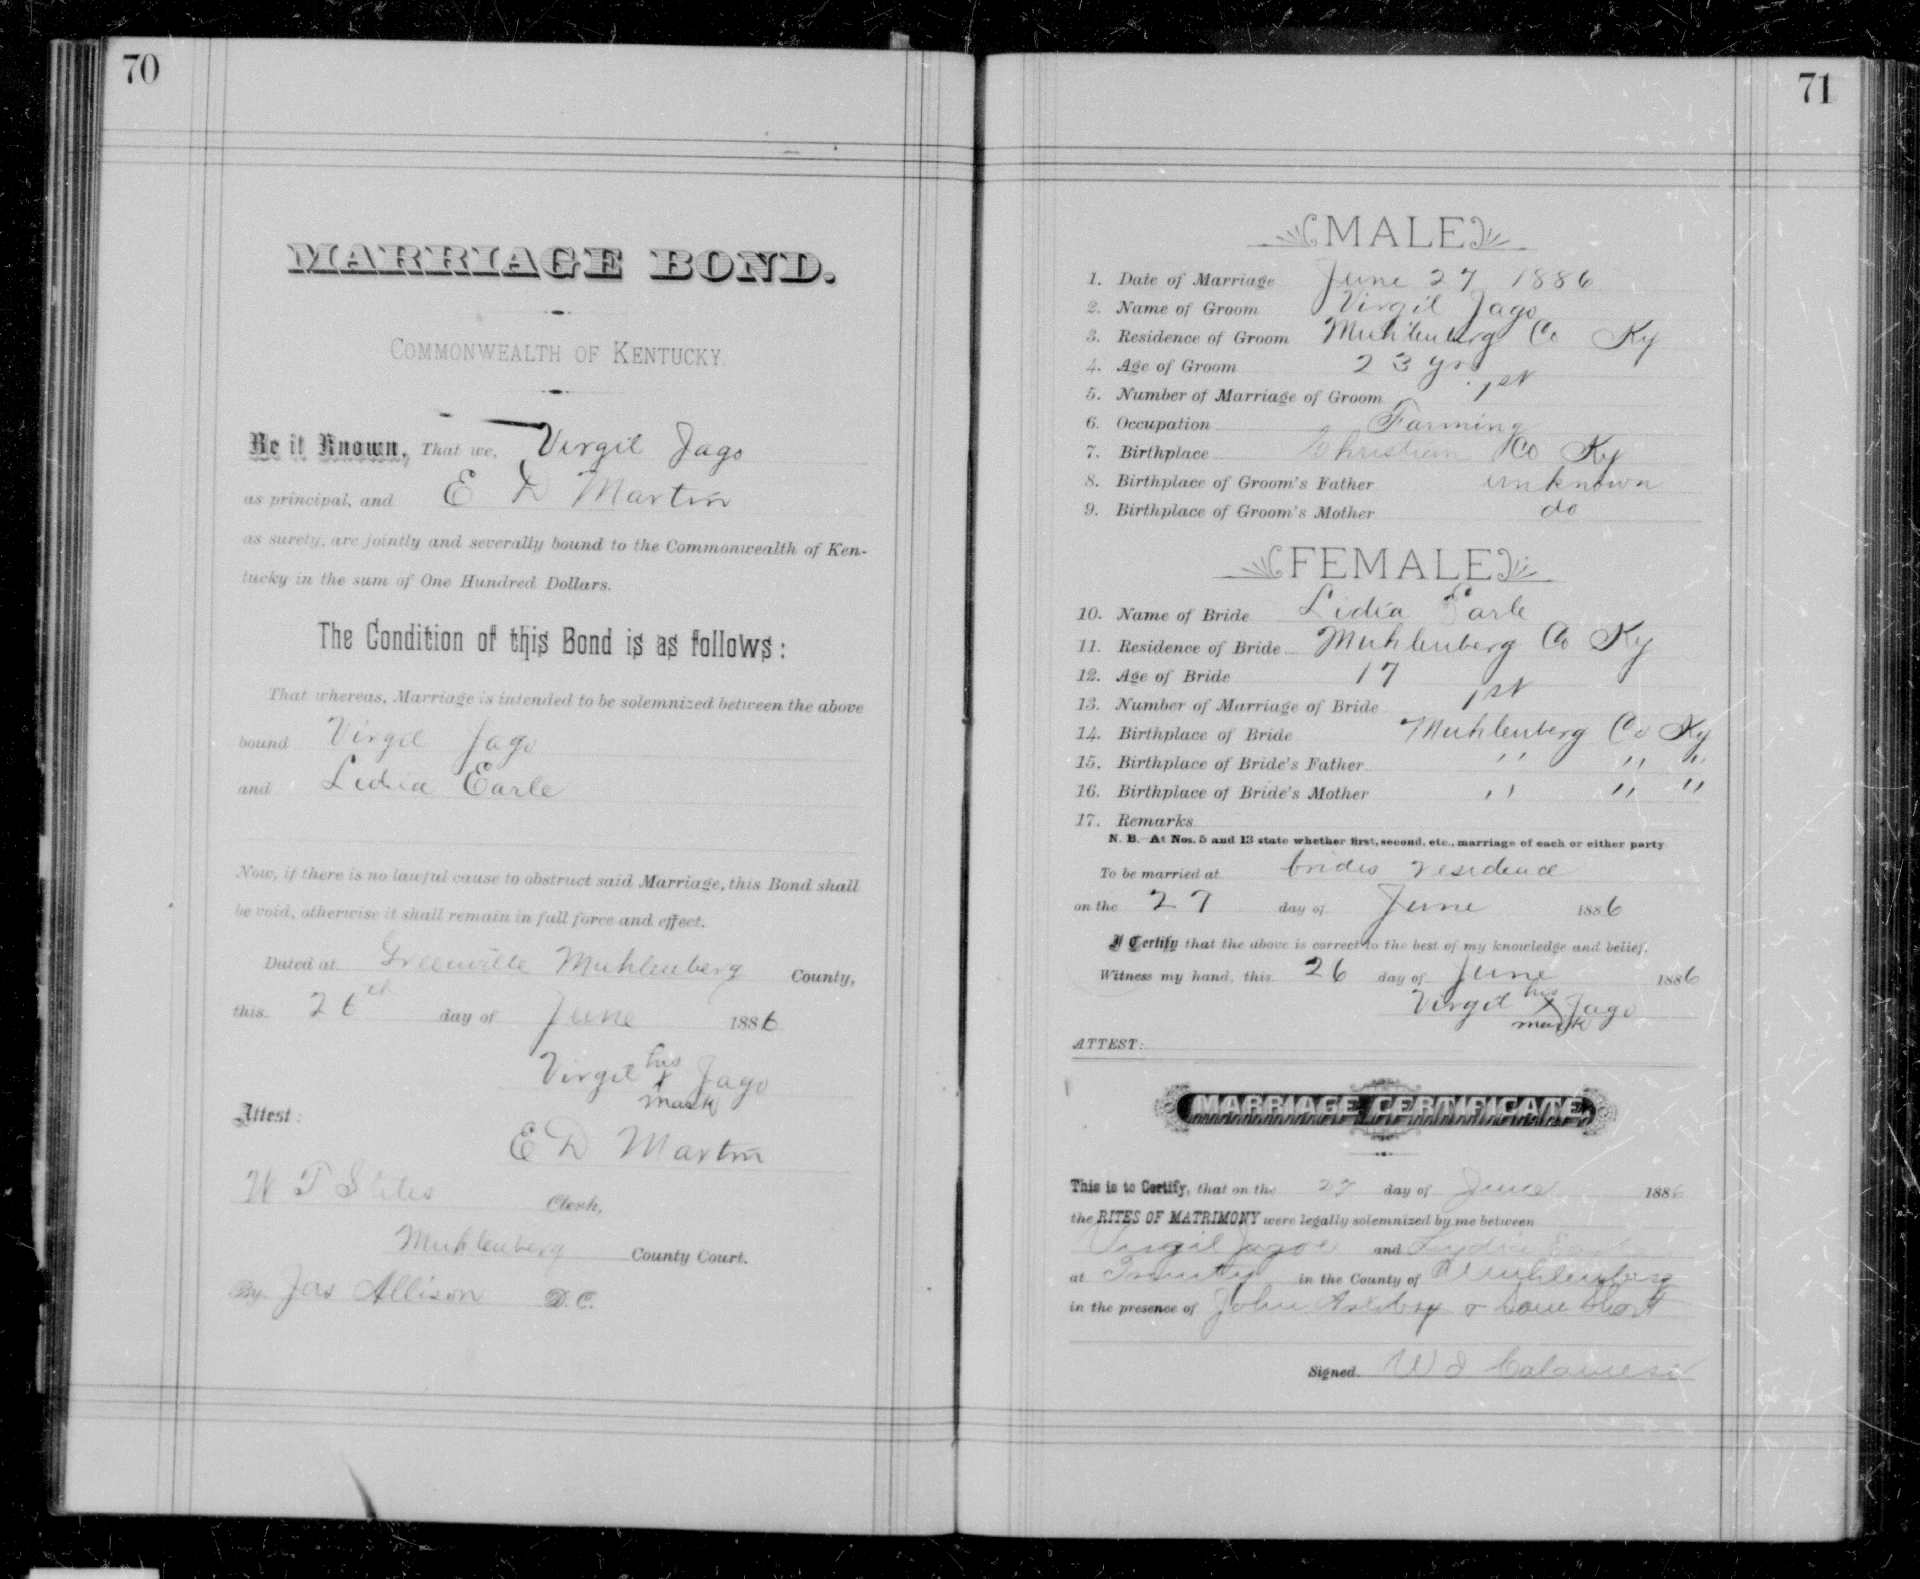 70
MARRIAGE BOND.
COMMONWEALTH OF KENTUCKY.
Be it Known, That we, Virgil Jago
as principal, and E D Martin
as surety, are jointly and severally bound to the Commonwealth of Ken-
tucky in the sum of One Hundred Dollars.
The Condition of this Bond is as follows:
That whereas, Marriage is intended to be solemnized between the above
bound Virgil Jago
and Lidia Earle
Now, if there is no lawful cause to obstruct said Marriage, this Bond shall
be void, otherwise it shall remain in full force and effect.
Dated at Greenville Muhlenberg County,
this 26th day of June 1886
Virgil his x mark Jago
Attest:
E D Martin
W T Stiles Clerk,
Muhlenberg County Court.
By Jas Allison D. C.
71
MALE
1. Date of Marriage June 27 1886
2. Name of Groom Virgil Jago
3. Residence of Groom Muhlenberg Co Ky
4. Age of Groom 23 yrs
5. Number of Marriage of Groom 1st
6. Occupation Farming
7. Birthplace Christian Co Ky
8. Birthplace of Groom's Father unknown
9. Birthplace of Groom's Mother do
FEMALE
10. Name of Bride Lidia Earle
11. Residence of Bride Muhlenberg Co Ky
12. Age of Bride 17
13. Number of Marriage of Bride 1st
14. Birthplace of Bride Muhlenberg Co Ky
15. Birthplace of Bride's Father " " "
16. Birthplace of Bride's Mother " " "
17. Remarks
N. B. At Nos. 5 and 13 state whether first, second, etc., marriage of each or either party
To be married at brides residence
on the 27 day of June 1886
I Certify that the above is correct to the best of my knowledge and belief.
Witness my hand, this 26 day of June 1886
Virgil his x mark Jago
ATTEST:
MARRIAGE CERTIFICATE
This is to Certify, that on the 27 day of June 1886
the RITES OF MATRIMONY were legally solemnized by me between
Virgil Jagoe and Lydia
at in the County of Muhlenberg
in the presence of John &
Signed W